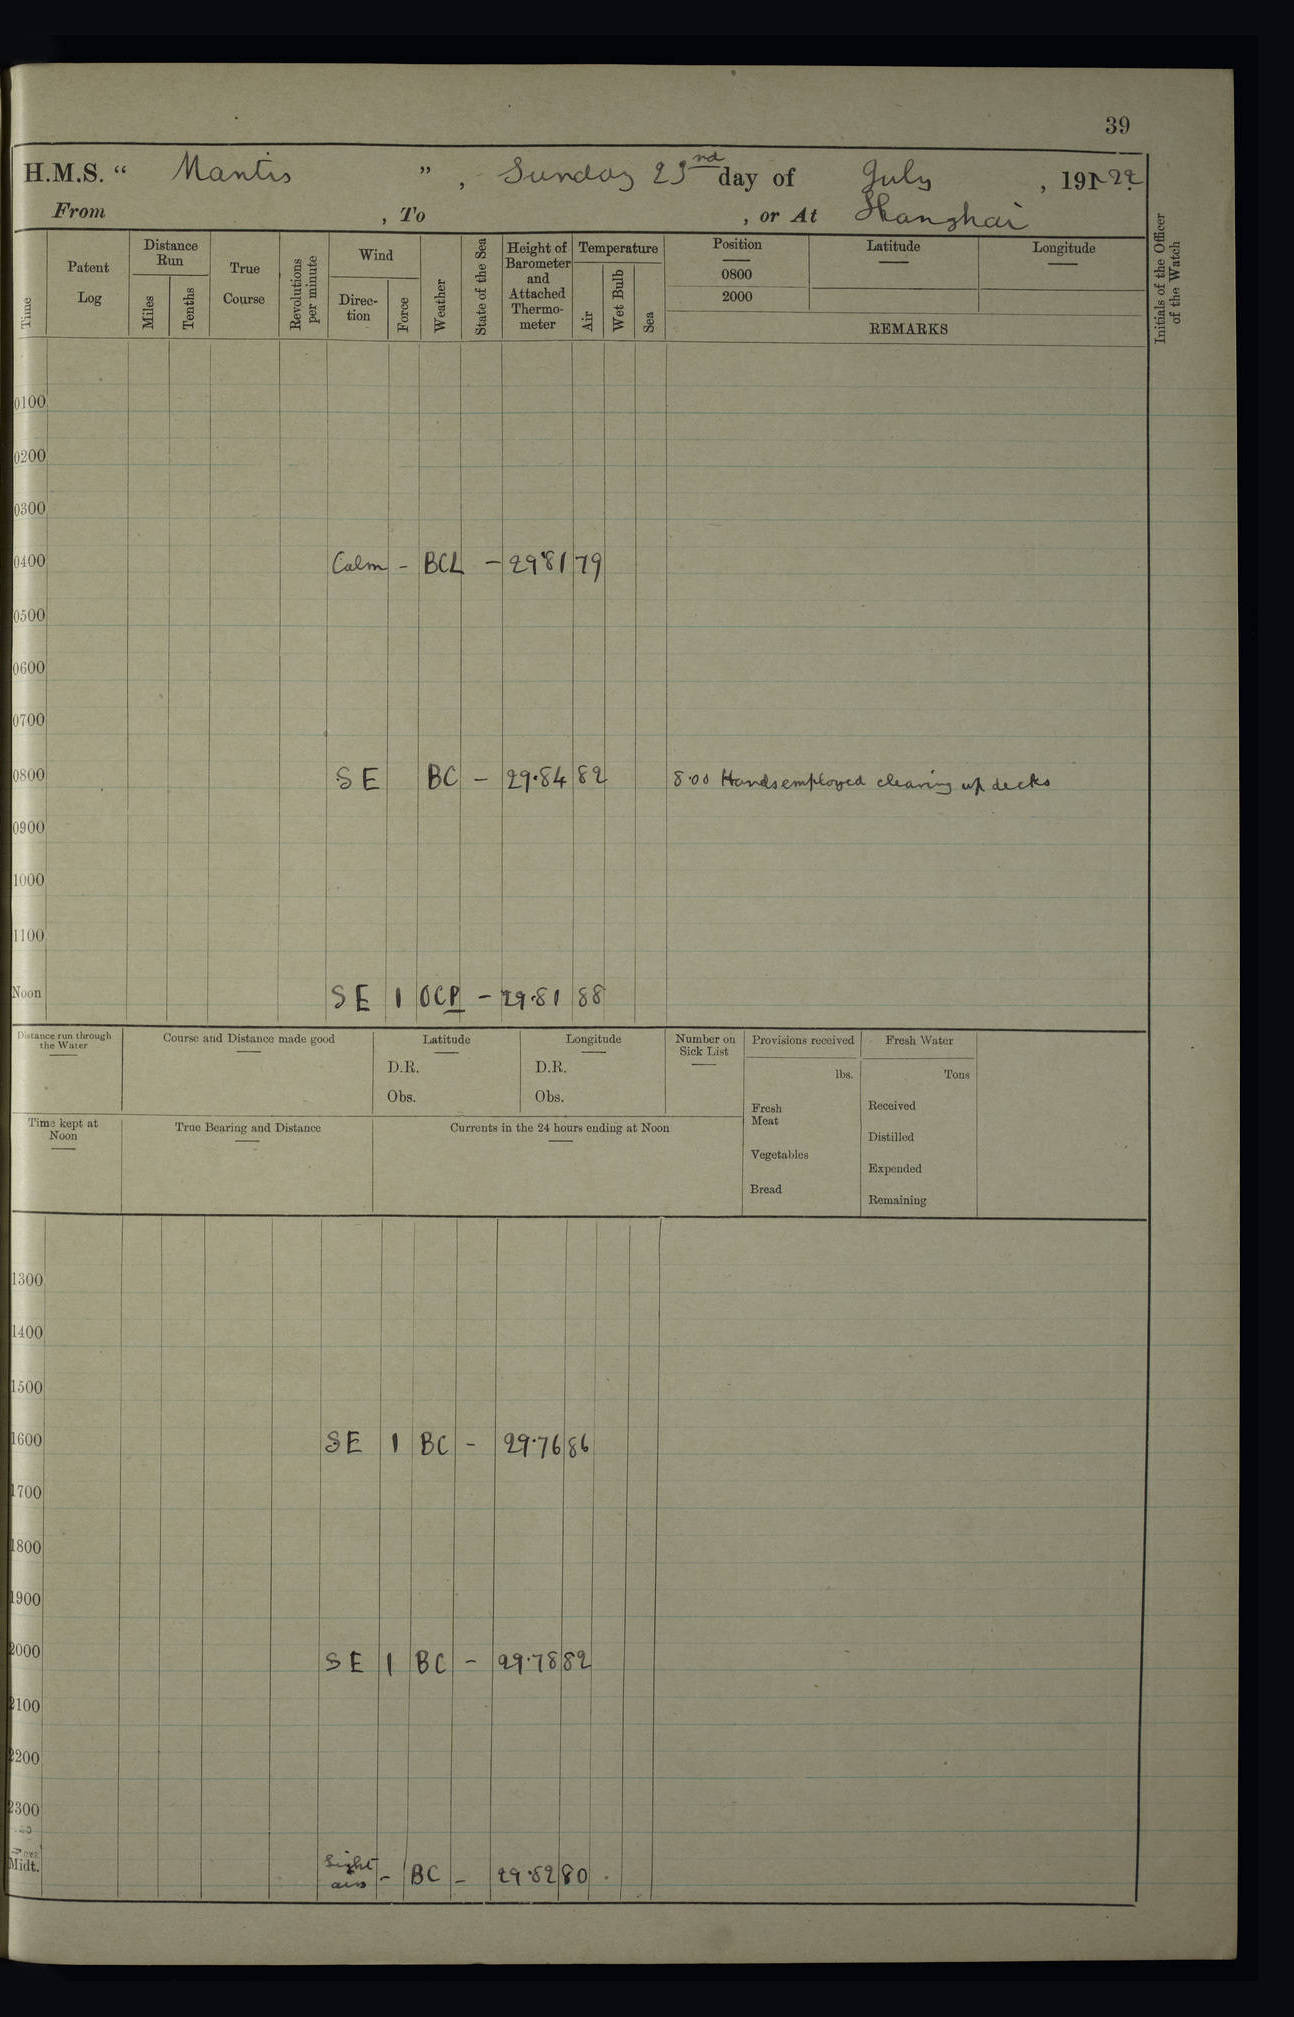 39
H.M.S. “ Mantis ”, Sunday 23nd day of July, 191 22.
From , To , or At Shanghai
Time Patent Log Distance Run Miles Tenths True Course Revolutions per minute Wind Direc- tion Force Weather State of the Sea Height of Barometer and Attached Thermo- meter Temperature Air Wet Bulb Sea Position 0800 2000 Latitude Longitude
REMARKS
Initials of the Officer of the Watch
0100
0200
0300
0400 Calm - BCL - 29.81 79
0500
0600
0700
0800 SE BC - 29.84 82 8.00 Hands employed clearing up decks
0900
1000
1100
Noon SE 1 OCP - 29.81 88
Distance run through the Water Course and Distance made good Latitude Longitude Number on Sick List Provisions received Fresh Water
D.R. D.R. lbs. Tons
Obs. Obs. Fresh Meat Received
Time kept at Noon True Bearing and Distance Currents in the 24 hours ending at Noon
Distilled
Vegetables Expended
Bread Remaining
1300
1400
1500
1600 SE 1 BC - 29.76 86
1700
1800
1900
2000 SE 1 BC - 29.78 82
2100
2200
2300
Midt. Light airs - BC - 29.82 80